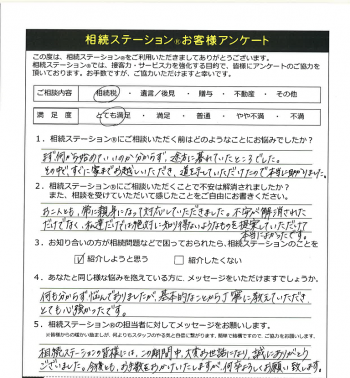 相続ステーション®お客様アンケート
この度は、相続ステーション®をご利用いただきましてありがとうございます。
相続ステーション®では、接客力・サービス力を強化する目的で、皆様にアンケートのご協力を
頂いております。お手数ですが、ご協力いただけますと幸いです。
ご相談内容 相続税 ・ 遺言／後見 ・ 贈与 ・ 不動産 ・ その他
満足度 とても満足 ・ 満足 ・ 普通 ・ やや不満 ・ 不満
1．相続ステーション®にご相談いただく前はどのようなことにお悩みでしたか？
まず何から始めていいのか分からず、途方に暮れていたところでした。
その中すぐに家までお越しいただき、道を示していただけたので本当に助かりました。
2．相続ステーション®にご相談いただくことで不安は解消されましたか？
また、相談を受けていただいて感じたことをご自由にお書きください。
お二人とも、常に親身になって対応していただきました。不安が解消された
だけでなく、私達だけでは絶対に知り得ないようなものを提案していただけて
本当によかったです。
3．お知り合いの方が相続問題などで困っておられたら、相続ステーション®のことを
☑紹介しようと思う □紹介したくない
4．あなたと同じ様な悩みを抱えている方に、メッセージをいただけますでしょうか。
何も分からず悩んでおりましたが、基本的なことから丁寧に教えていただき
とても心強かったです。
5．相続ステーション®の担当者に対してメッセージをお願いします。
相続ステーションの皆様には、この期間中、大変お世話になり、誠にありがとう
ございました。今後とも、お手数をおかけいたしますが、何卒よろしくお願い致します。